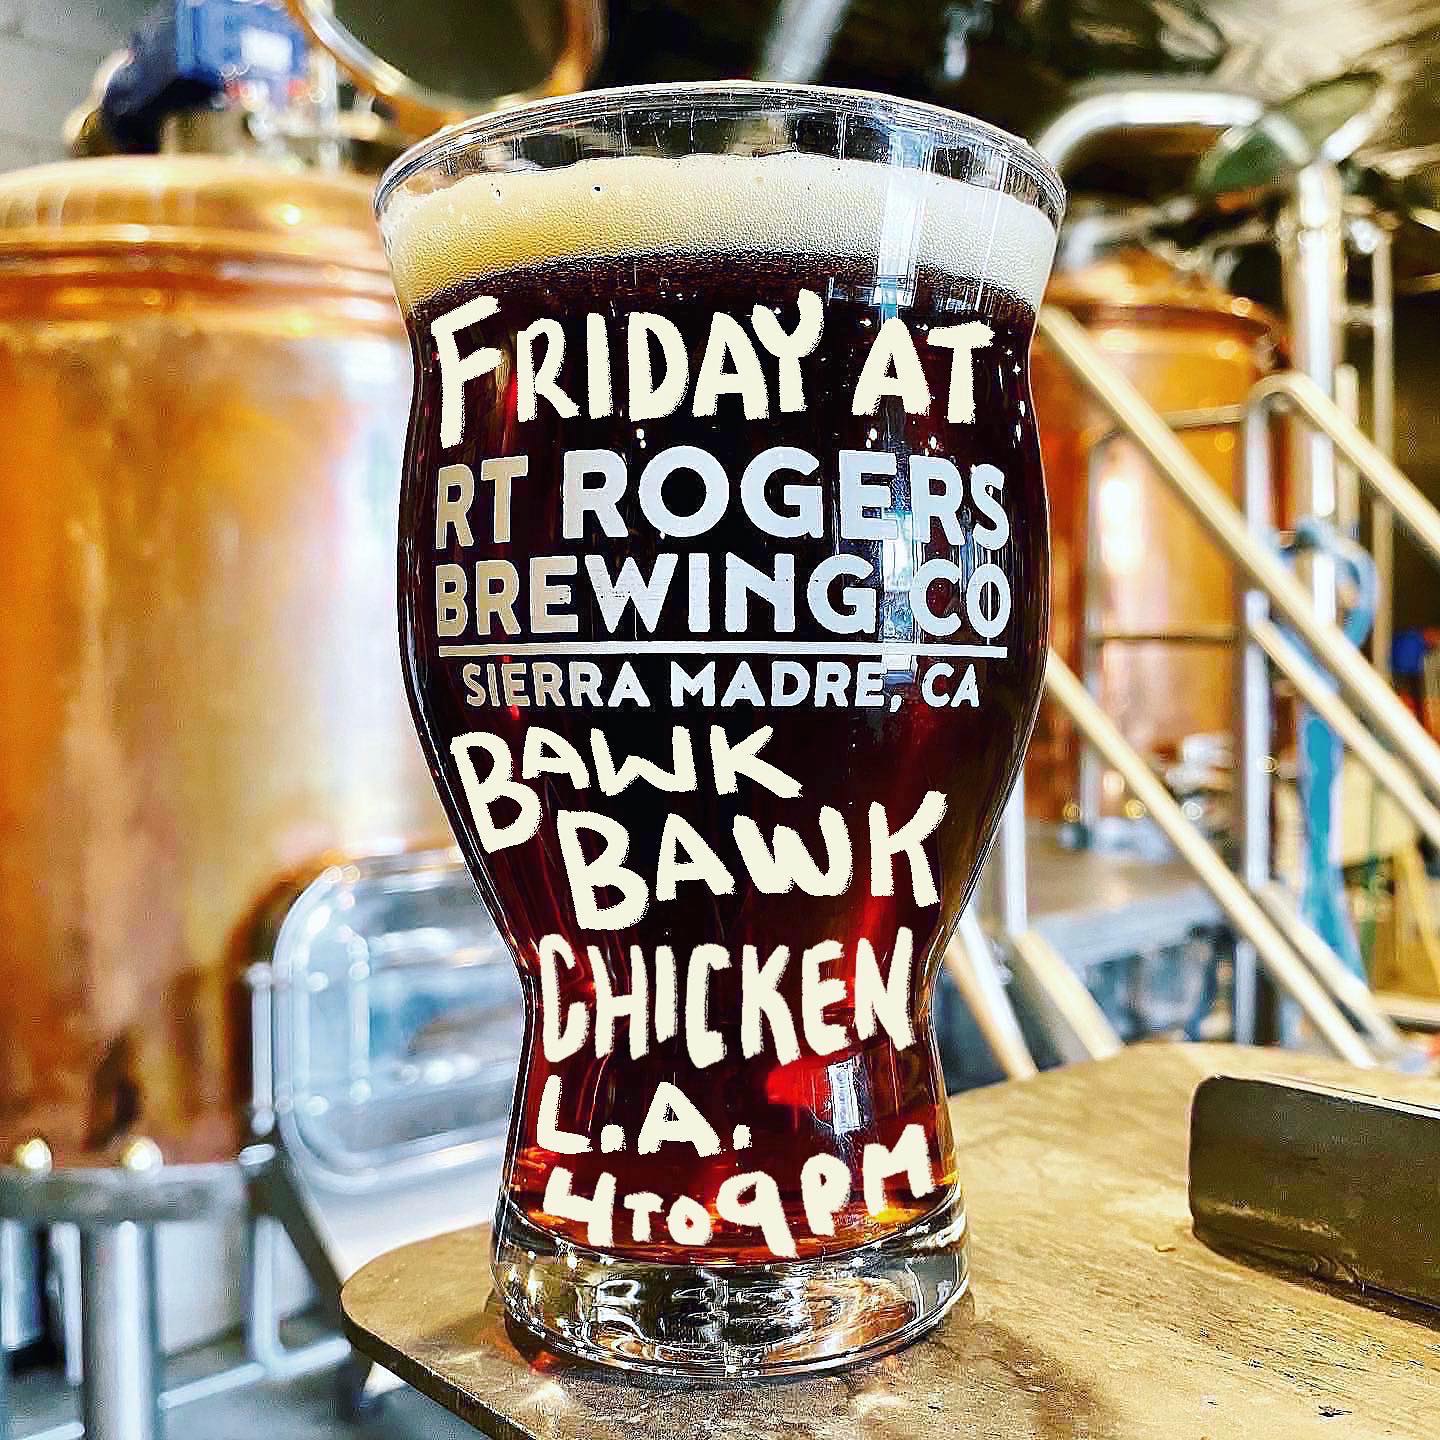 FRIDAY AT
RT ROGERS
BREWING CO
SIERRA MADRE, CA
BAWK
BAWK
CHICKEN
L.A.
4 TO 9 PM